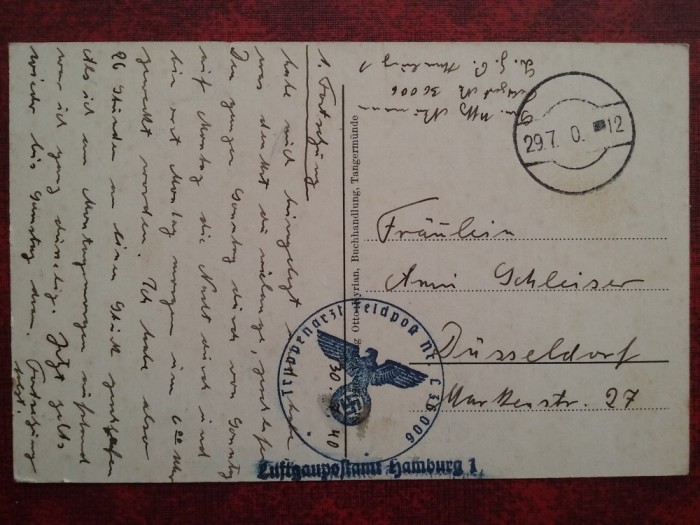 1. Fortsetzung
habe mich hingelegt u. habe
was denkst du wielange, geschlafen
Den ganzen Sonntag durch von Sonntag
auf Montag die Nacht durch und
bin erst Montag morgen um 6 00 Uhr
geweckt worden. Ich habe also
26 Stunden an einem Stück geschlafen
Als ich am Montagmorgen aufstand
war ich ganz dusselig. Jetzt
wieder bis Samstag dran. Fortsetzung
folgt.
Otto Thyrian, Buchhandlung, Tangermünde
Neumann
Feldpost Nr 36006
L. G. P. Hamburg 1
29.7. 0. 12
Fräulein
Anni Schleiser
Düsseldorf
Markenstr. 27
Truppenarzt Feldpost Nr. L 36006
30. 40
Luftgaupostamt Hamburg 1.